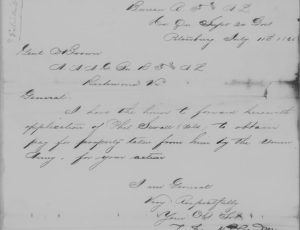 Bureau R. F. & A. L.
Petersburg July 11th 186
Genl Brown
A. A. A. G. Bu R. F. & A. L.
Richmond Va
General.
I have the honor to forward herewith
application of Phil (Cold), to obtain
pay for property taken from him by the Union
Army, for your action
I am General
Very Respectfully
Your Obt Servt